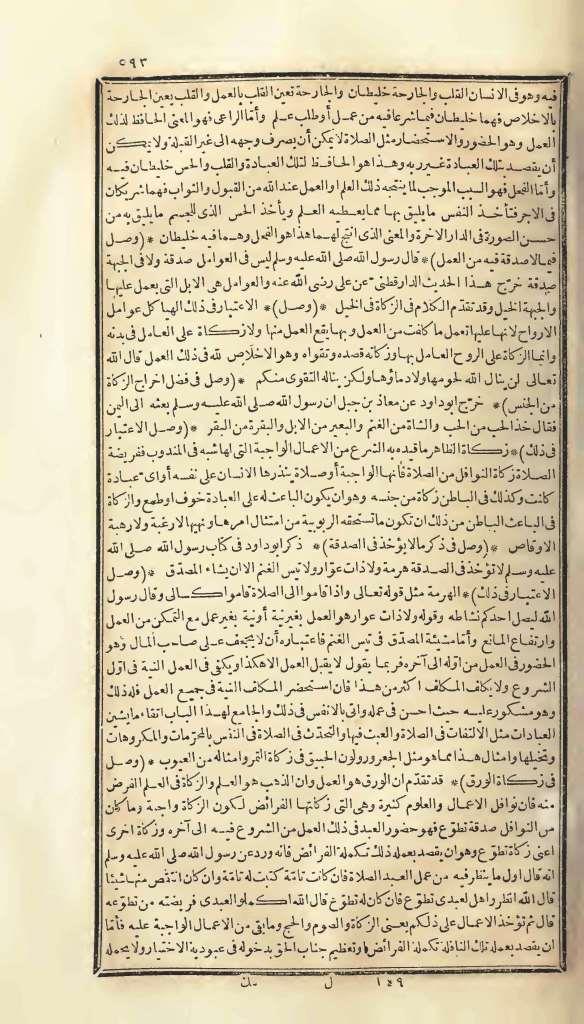 ٥٩٣
فيه وهو فى الانسان القلب والجارحة خليطان والجارحة تعين القلب بالعمل والقلب يعين الجارحة
بالاخلاص فهما خليطان فيما شرعا فيه من عمل أو طلب علم وأما الراعى فهو المعنى الحافظ لذلك
العمل وهو الحضور والاستحضار مثل الصلاة لا يمكن أن يصرف وجهه الى غير القبلة ولا يمكن
أن يقصد بتلك العبادة غير ربه وهذا هو الحافظ لتلك العبادة والقلب والحس خليطان فيه
وأما الفحل فهو السبب الموجب لما ينتجه ذلك العلم او العمل عند الله من القبول والثواب فهما شريكان
فى الاجر فتأخذ النفس ما يليق بها مما يعطيه العلم ويأخذ الحس الذى للجسم ما يليق به من
حسن الصورة فى الدار الآخرة والمعنى الذى انتج لهما هذا هو الفحل وهما فيه خليطان *(وصل
فيما لا صدقة فيه من العمل)* قال رسول الله صلى الله عليه وسلم ليس فى العوامل صدقة ولا فى الجبهة
صدقة خرّج هذا الحديث الدارقطنى عن على رضى الله عنه والعوامل هى الابل التى يعمل عليها
والجبهة الخيل وقد تقدّم الكلام فى الزكاة فى الخيل *(وصل)* الاعتبار فى ذلك الهياكل عوامل
الارواح لانها عليها تعمل ما كلفت من العمل وبها يقع العمل منها ولا زكاة على العامل فى بدنه
وانما الزكاة على الروح العامل بها وزكاته قصده وتقواه وهو الاخلاص لله فى ذلك العمل قال الله
تعالى لن ينال الله لحومها ولا دماؤها ولكن يناله التقوى منكم *(وصل فى فضل اخراج الزكاة
من الجنس)* خرّج ابو داود عن معاذ بن جبل ان رسول الله صلى الله عليه وسلم بعثه الى اليمن
فقال خذ الحب من الحب والشاة من الغنم والبعير من الابل والبقرة من البقر *(وصل الاعتبار
فى ذلك)* زكاة الظاهر ما قيده به الشرع من الاعمال الواجبة التى لها شبه فى المندوب ففريضة
الصلاة زكاة النوافل من الصلاة فانها الواجبة أو صلاة ينذرها الانسان على نفسه أو اى عبادة
كانت وكذلك فى الباطن زكاة من جنسه وهو ان يكون الباعث له على العبادة خوف او طمع والزكاة
فى الباعث الباطن من ذلك ان تكون ما تستحقه الربوبية من امتثال امرها ونهيها لا رغبة ولا رهبة
الا وقاص *(وصل فى ذكر ما لا يؤخذ فى الصدقة)* ذكر ابو داود فى كتاب رسول الله صلى الله
عليه وسلم لا تؤخذ فى الصدقة هرمة ولا ذات عوّار ولا تيس الغنم الا ان يشاء المصدّق *(وصل
الاعتبار فى ذلك)* الهرمة مثل قوله تعالى واذا قاموا الى الصلاة قاموا كسالى وقال رسول
الله ليصل احدكم نشاطه وقوله ولا ذات عوار هو العمل بغير نية أو نية بغير عمل مع التمكن من العمل
وارتفاع المانع وأما مشيئة المصدّق فى تيس الغنم فاعتباره أن لا يجحف على صاحب المال وهو
الحضور فى العمل من اوّله الى آخره فربما يقول لا يقبل العمل الا هكذا ويكفى فى العمل النية فى اوّل
الشروع ولا يكلف المكلف اكثر من هذا فان استحضر المكلف النية فى جميع العمل فله ذلك
وهو مشكور عليه حيث احسن فى عمله وأتى بالانفس فى ذلك والجامع لهذا الباب اتقاء ما يشين
العبادات مثل الالتفات فى الصلاة والعبث فيها والتحدّث فى الصلاة فى النفس بالمحرّمات والمكروهات
وتخيلها وامثال هذا مما هو مثل الجعرور ولون الحبيق فى زكاة التمر وامثاله من العيوب *(وصل
فى زكاة الورق)* قد تقدّم ان الورق هو العمل وان الذهب هو العلم والزكاة فى العلم الفرض
منه فان نوافل الاعمال والعلوم كثيرة وهى التى زكاتها الفرائض لكون الزكاة واجبة وما كان
من النوافل صدقة تطوّع فهو حضور العبد فى ذلك العمل من الشروع فيه الى آخره وزكاة اخرى
اعنى زكاة تطوّع وهو ان يقصد بعمله ذلك تكملة الفرائض فانه ورد عن رسول الله صلى الله عليه وسلم
انه قال اول ما ينظر فيه من عمل العبد الصلاة فان كانت تامّة كتبت له تامّة وان كان انتقص منها شيئا
قال الله انظروا هل لعبدى تطوّع فان كان له تطوّع قال الله اكملوا لعبدى فريضته من تطوّعه
قال ثم تؤخذ الاعمال على ذلكم يعنى الزكاة والصوم والحج وما بقى من الاعمال الواجبة عليه فأما
ان يقصد بعمله تلك النافلة تكملة الفرائض او تعظيم جناب الحق بدخوله فى عبودية الاختيار ولا يحمله
١٤٩ ل مك